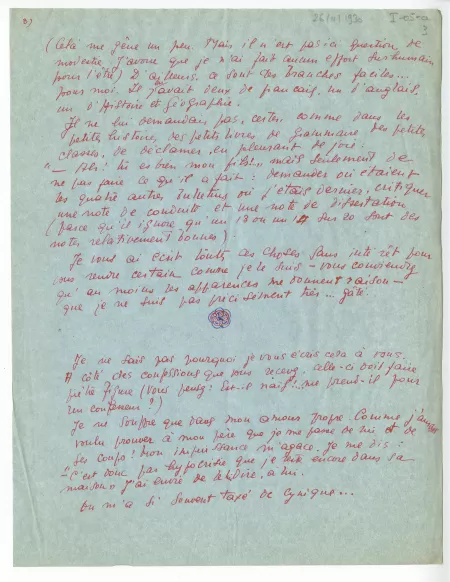 3)
26/11/1970 I-050a
3
(Cela me gêne un peu. Mais il n'est pas ici question de
modestie. J'avoue que je n'ai fait aucun effort surhumain
pour l'été) D'ailleurs, ce sont des branches faciles...
pour moi. Il y avait deux de français, un d'anglais,
un d'Histoire et géographie.
Je ne lui demandais pas, certes, comme dans les
petites histoires, des petits livres de grammaire des petites
classes, de déclamer, en pleurant de joie:
"— Ah! tu es bien mon fils!" mais seulement de
ne pas faire ce qu'il a fait: demander où étaient
les quatre autres bulletins où j'étais dernier, critiquer
une note de conduite et une note de dissertation
(parce qu'il ignore qu'un 13 ou un 14 sur 20 sont des
notes relativement bonnes).
Je vous ai écrit toutes ces choses sans intérêt pour
vous rendre certain comme je le suis — vous conviendrez
qu'au moins les apparences me donnent raison —
que je ne suis pas précisément très... gâté.
Je ne sais pas pourquoi je vous écris cela à vous.
A côté des confessions que vous recevez, celle-ci doit faire
piètre figure (vous pensez: Est-il naïf!.. me prend-il pour
un confesseur!)
Je ne souffre que dans mon amour propre. Comme j'aurais
voulu prouver à mon père que je me passe de lui et de
ses coups! Mon impuissance m'agace. Je me dis:
"C'est donc par hypocrisie que je suis encore dans sa
maison" J'ai envie de le dire, à lui.
On m'a si souvent taxé de cynique...